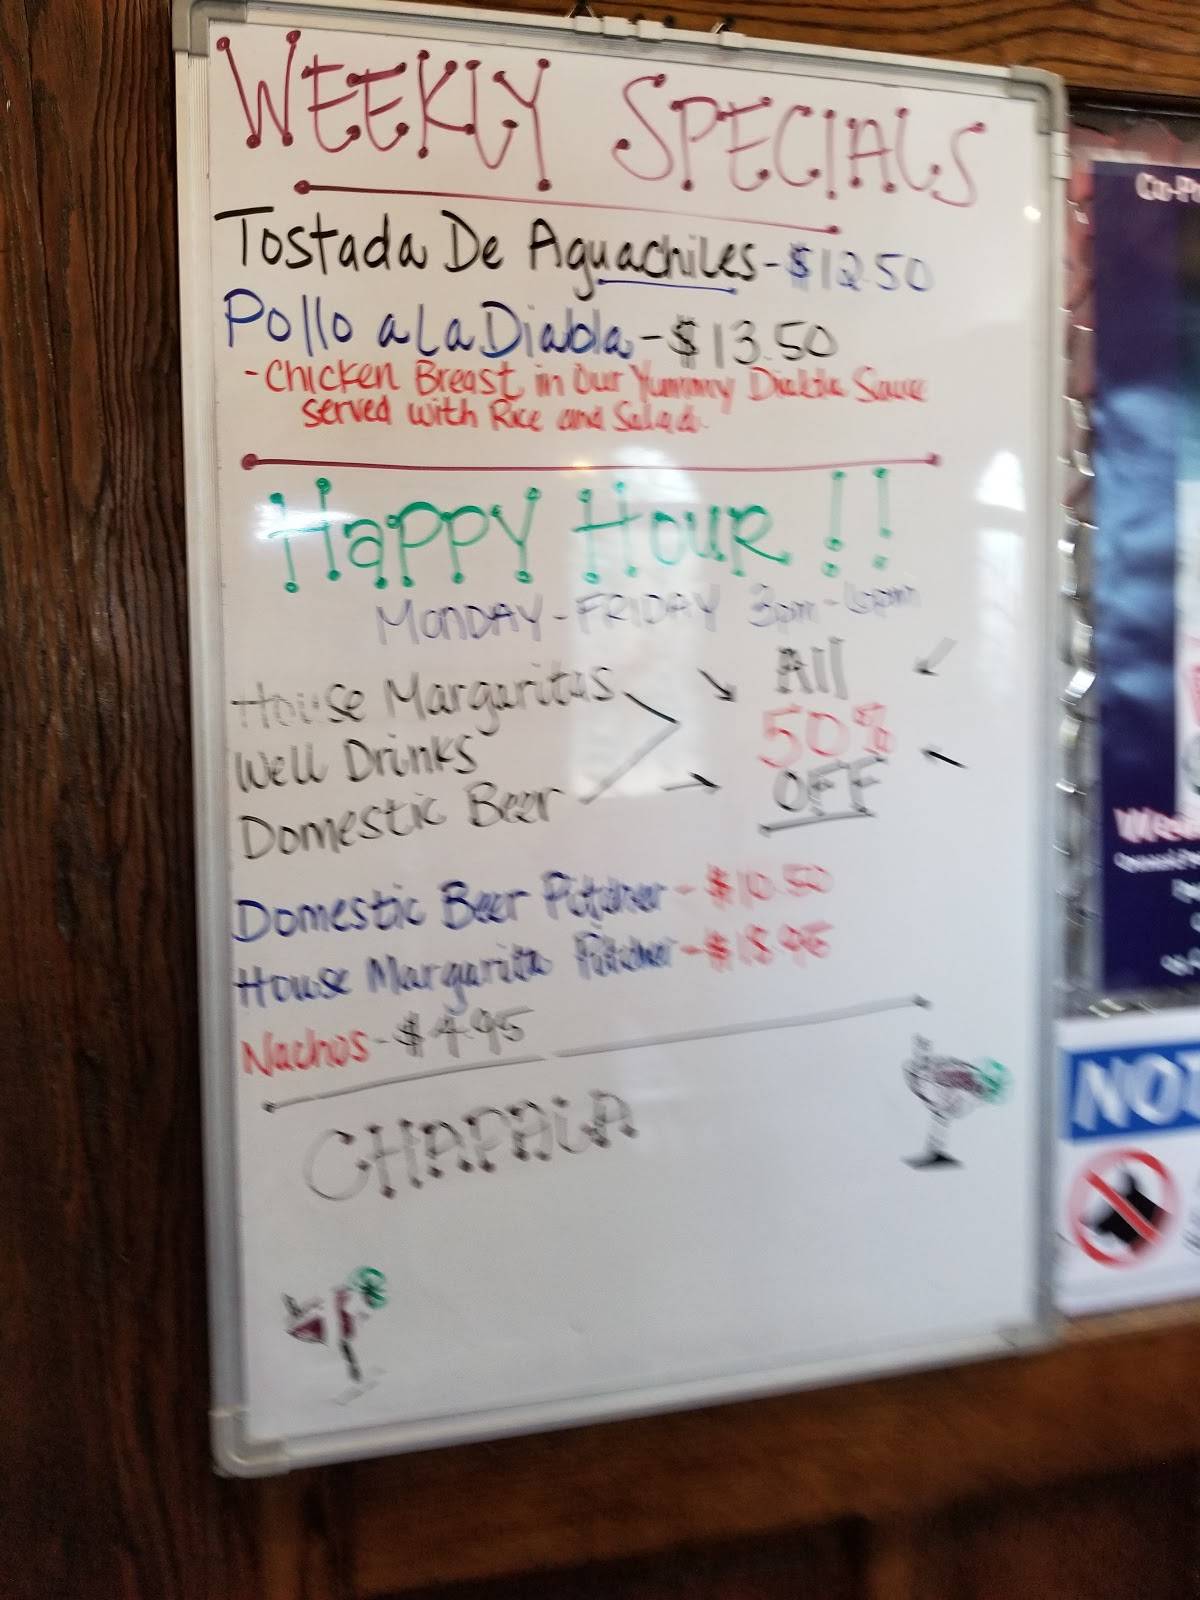 WEEKLY SPECIALS
Tostada De Aguachiles - $12.50
Pollo a La Diabla - $13.50
- Chicken Breast in Our Yummy Diabla Sauce
served with Rice and Salad.
Happy Hour!!
MONDAY - FRIDAY 3pm - 6pm
House Margaritas
Well Drinks
Domestic Beer
All
50%
OFF
Domestic Beer Pitcher - $10.50
House Margarita Pitcher -
Nachos - $4.95
CHAPALA
Co-P
NOT